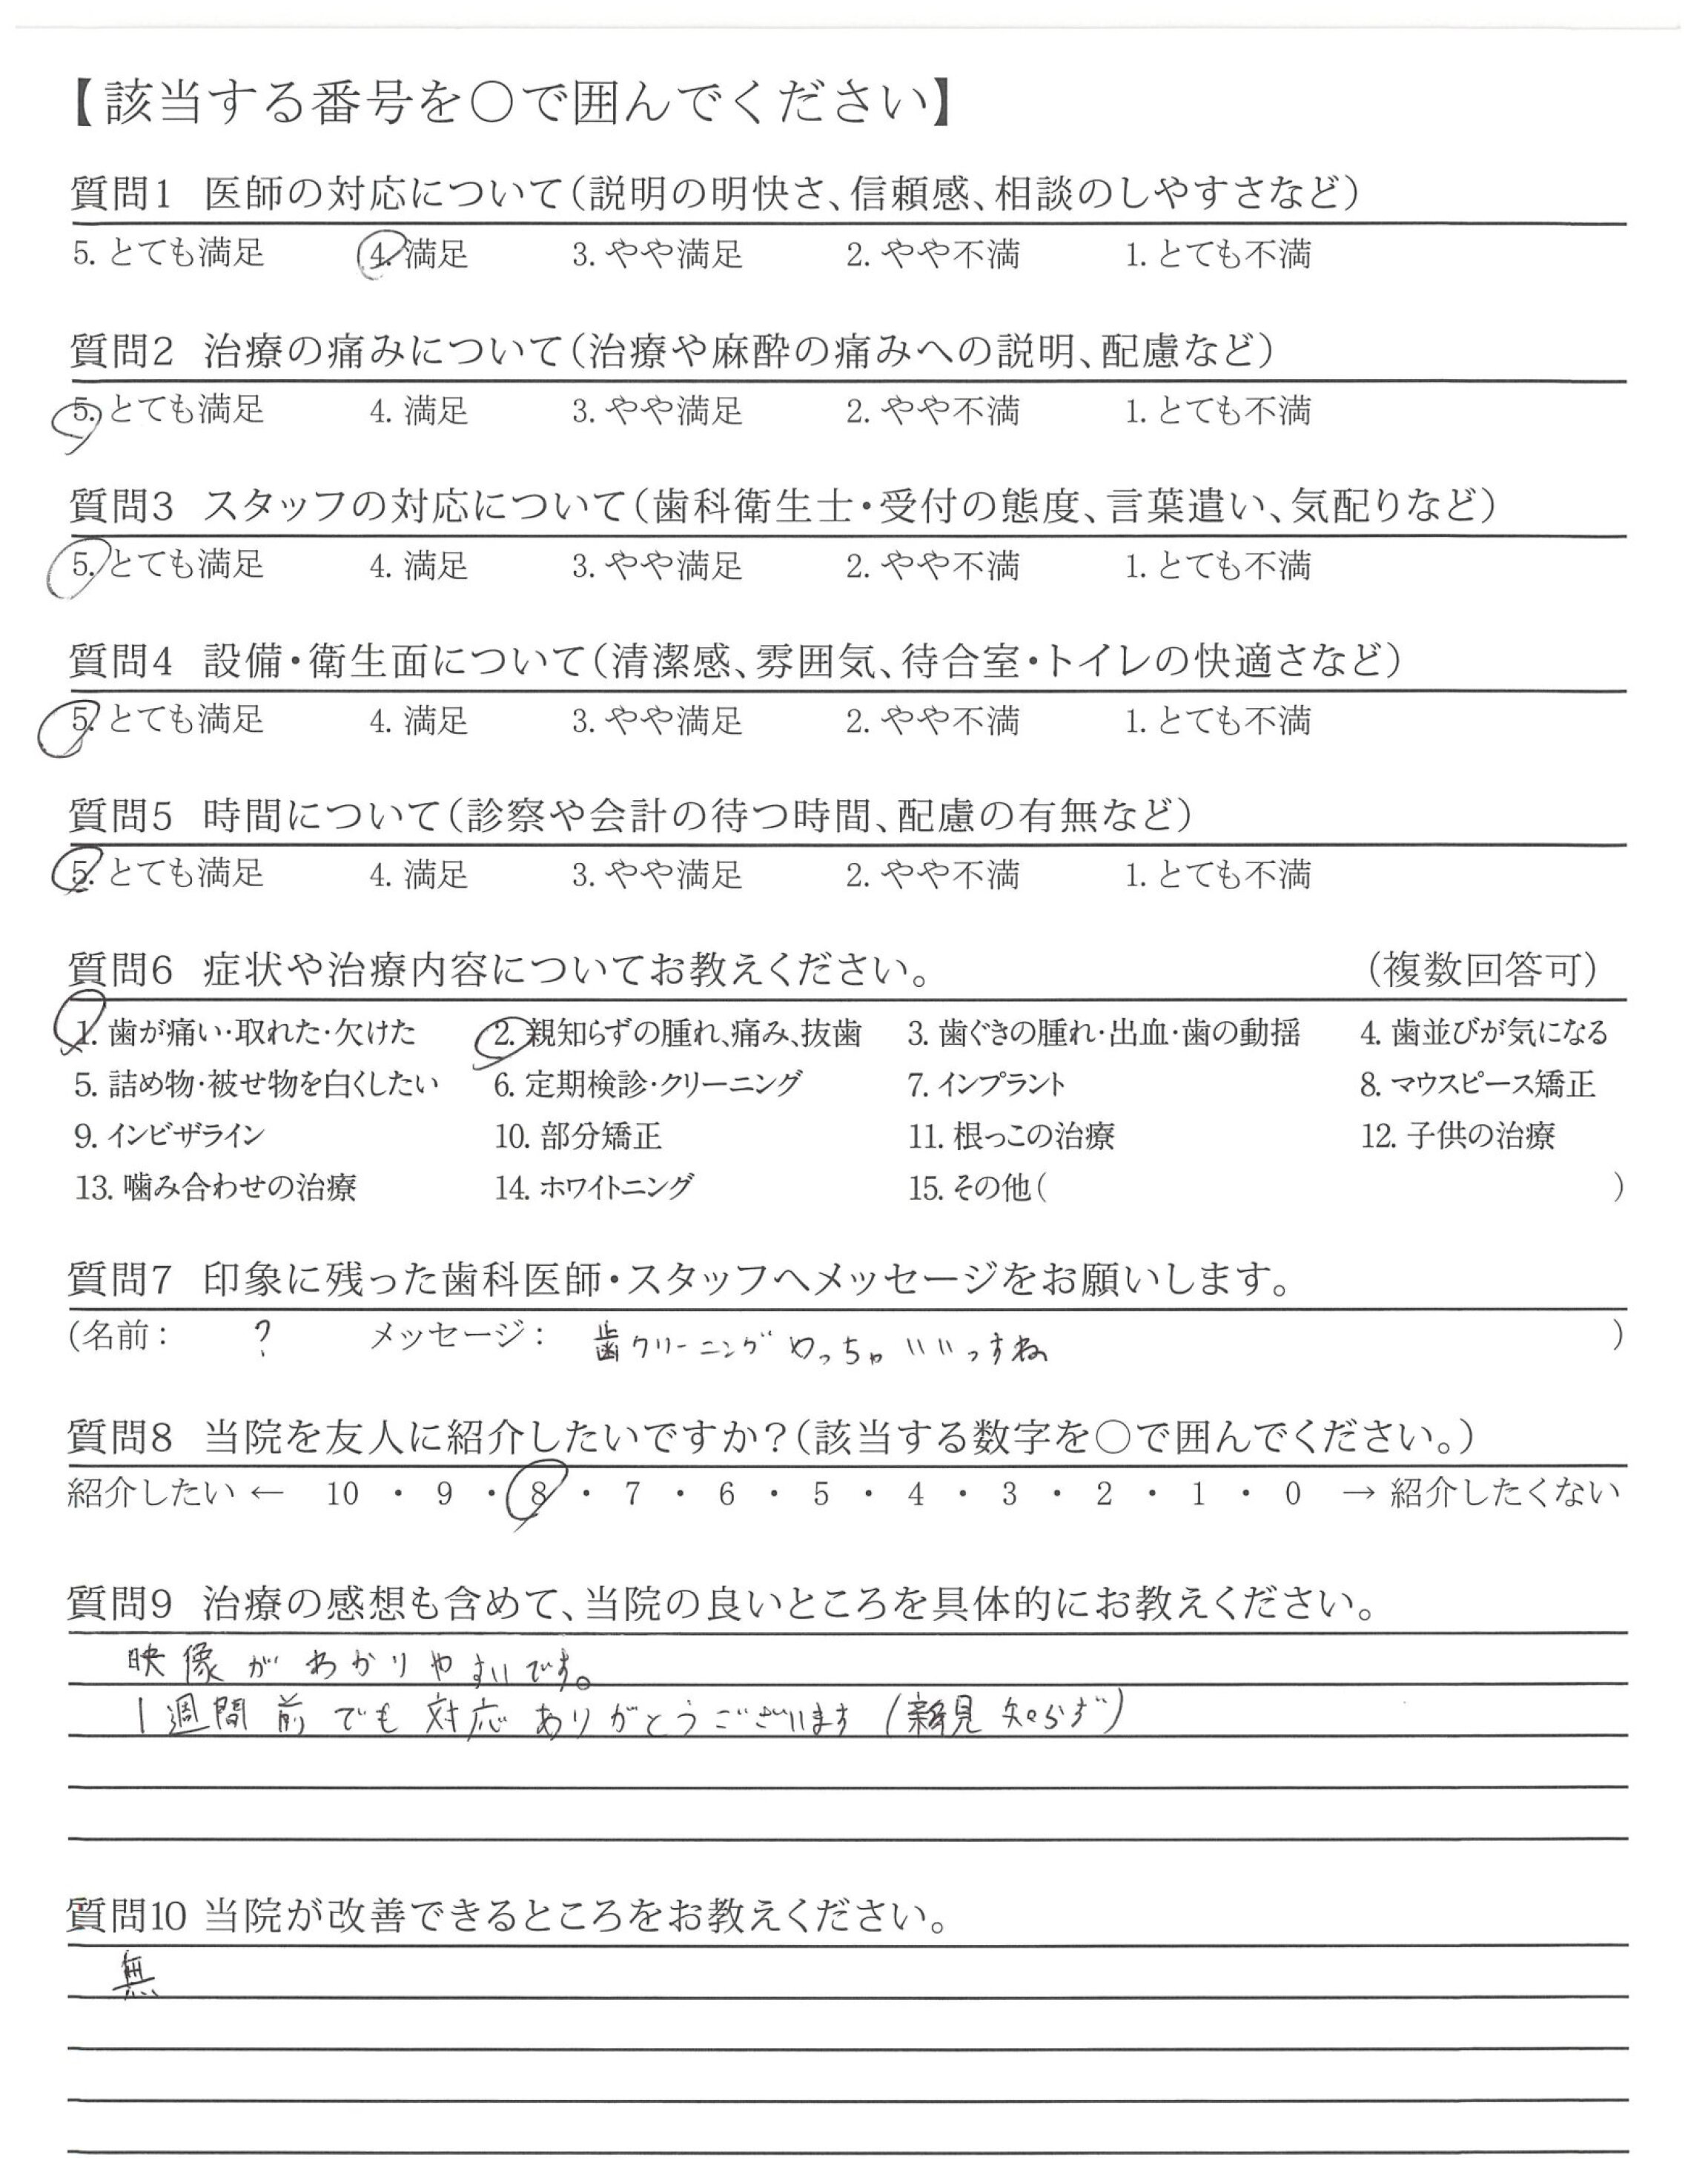 【該当する番号を○で囲んでください】
質問1 医師の対応について(説明の明快さ、信頼感、相談のしやすさなど)
5. とても満足 4. 満足 3. やや満足 2. やや不満 1. とても不満
質問2 治療の痛みについて(治療や麻酔の痛みへの説明、配慮など)
5. とても満足 4. 満足 3. やや満足 2. やや不満 1. とても不満
質問3 スタッフの対応について(歯科衛生士・受付の態度、言葉遣い、気配りなど)
5. とても満足 4. 満足 3. やや満足 2. やや不満 1. とても不満
質問4 設備・衛生面について(清潔感、雰囲気、待合室・トイレの快適さなど)
5. とても満足 4. 満足 3. やや満足 2. やや不満 1. とても不満
質問5 時間について(診察や会計の待つ時間、配慮の有無など)
5. とても満足 4. 満足 3. やや満足 2. やや不満 1. とても不満
質問6 症状や治療内容についてお教えください。 (複数回答可)
1. 歯が痛い・取れた・欠けた 2. 親知らずの腫れ、痛み、抜歯 3. 歯ぐきの腫れ・出血・歯の動揺 4. 歯並びが気になる
5. 詰め物・被せ物を白くしたい 6. 定期検診・クリーニング 7. インプラント 8. マウスピース矯正
9. インビザライン 10. 部分矯正 11. 根っこの治療 12. 子供の治療
13. 噛み合わせの治療 14. ホワイトニング 15. その他( )
質問7 印象に残った歯科医師・スタッフへメッセージをお願いします。
(名前: ? メッセージ: 歯クリーニングめっちゃいいっすね )
質問8 当院を友人に紹介したいですか?(該当する数字を○で囲んでください。)
紹介したい ← 10 ・ 9 ・ 8 ・ 7 ・ 6 ・ 5 ・ 4 ・ 3 ・ 2 ・ 1 ・ 0 → 紹介したくない
質問9 治療の感想も含めて、当院の良いところを具体的にお教えください。
映像がわかりやすいです。
1週間前でも対応ありがとうございます(親知らず)
質問10 当院が改善できるところをお教えください。
無